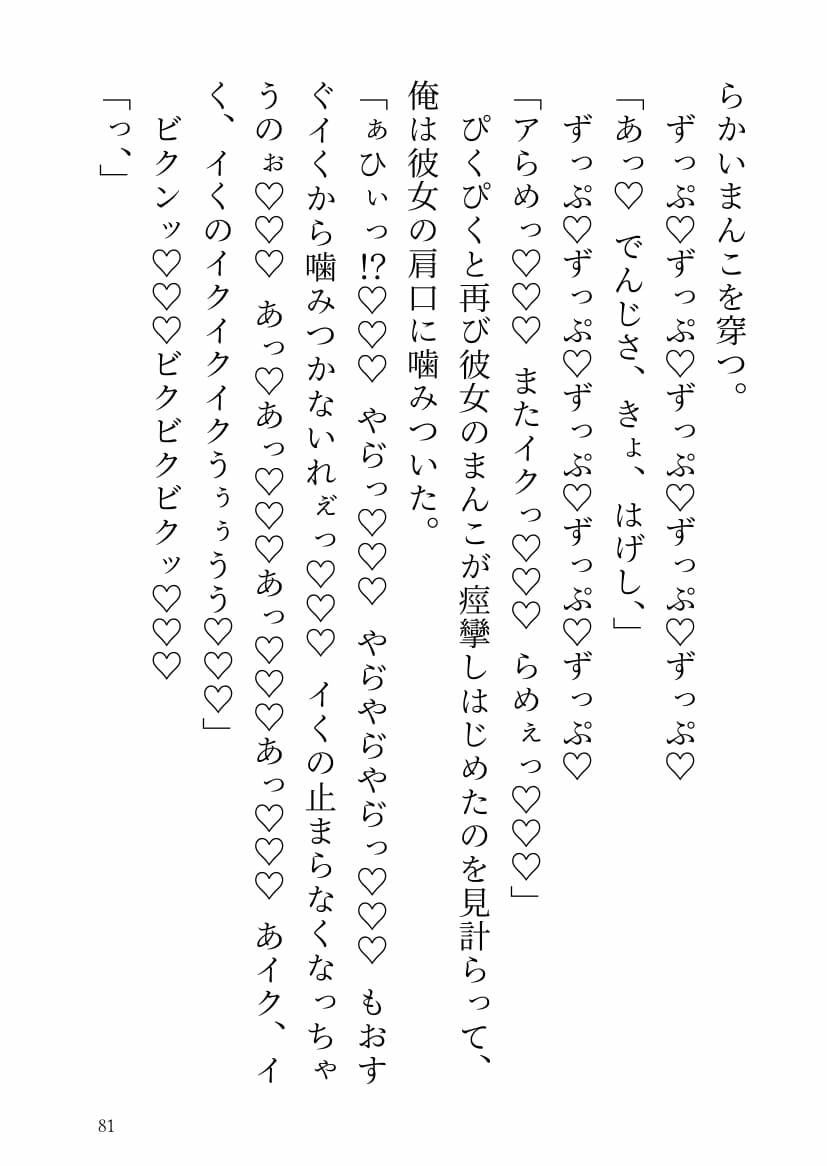 らかいまんこを穿つ。
ずっぷ♡ずっぷ♡ずっぷ♡ずっぷ♡ずっぷ♡
「あっ♡ でんじさ、きょ、はげし、」
ずっぷ♡ずっぷ♡ずっぷ♡ずっぷ♡ずっぷ♡
「アらめっ♡♡♡ またイクっ♡♡♡ らめぇっ♡♡♡」
ぴくぴくと再び彼女のまんこが痙攣しはじめたのを見計らって、
俺は彼女の肩口に噛みついた。
「ぁひぃっ!?♡♡♡ やぢっ♡♡♡ やぢやぢやぢっ♡♡♡ もおす
ぐイくから噛みつかないれぇ゙っ♡♡♡ イくの止まらなくなっちゃ
うのぉ♡♡♡ あっ♡あっ♡♡♡あっ♡♡♡あっ♡♡♡ あイク、イ
く、イくのイクイクイクうぅぅうう♡♡♡」
ビクンッ♡♡♡ビクビクビクッ♡♡♡
「っ、」
81